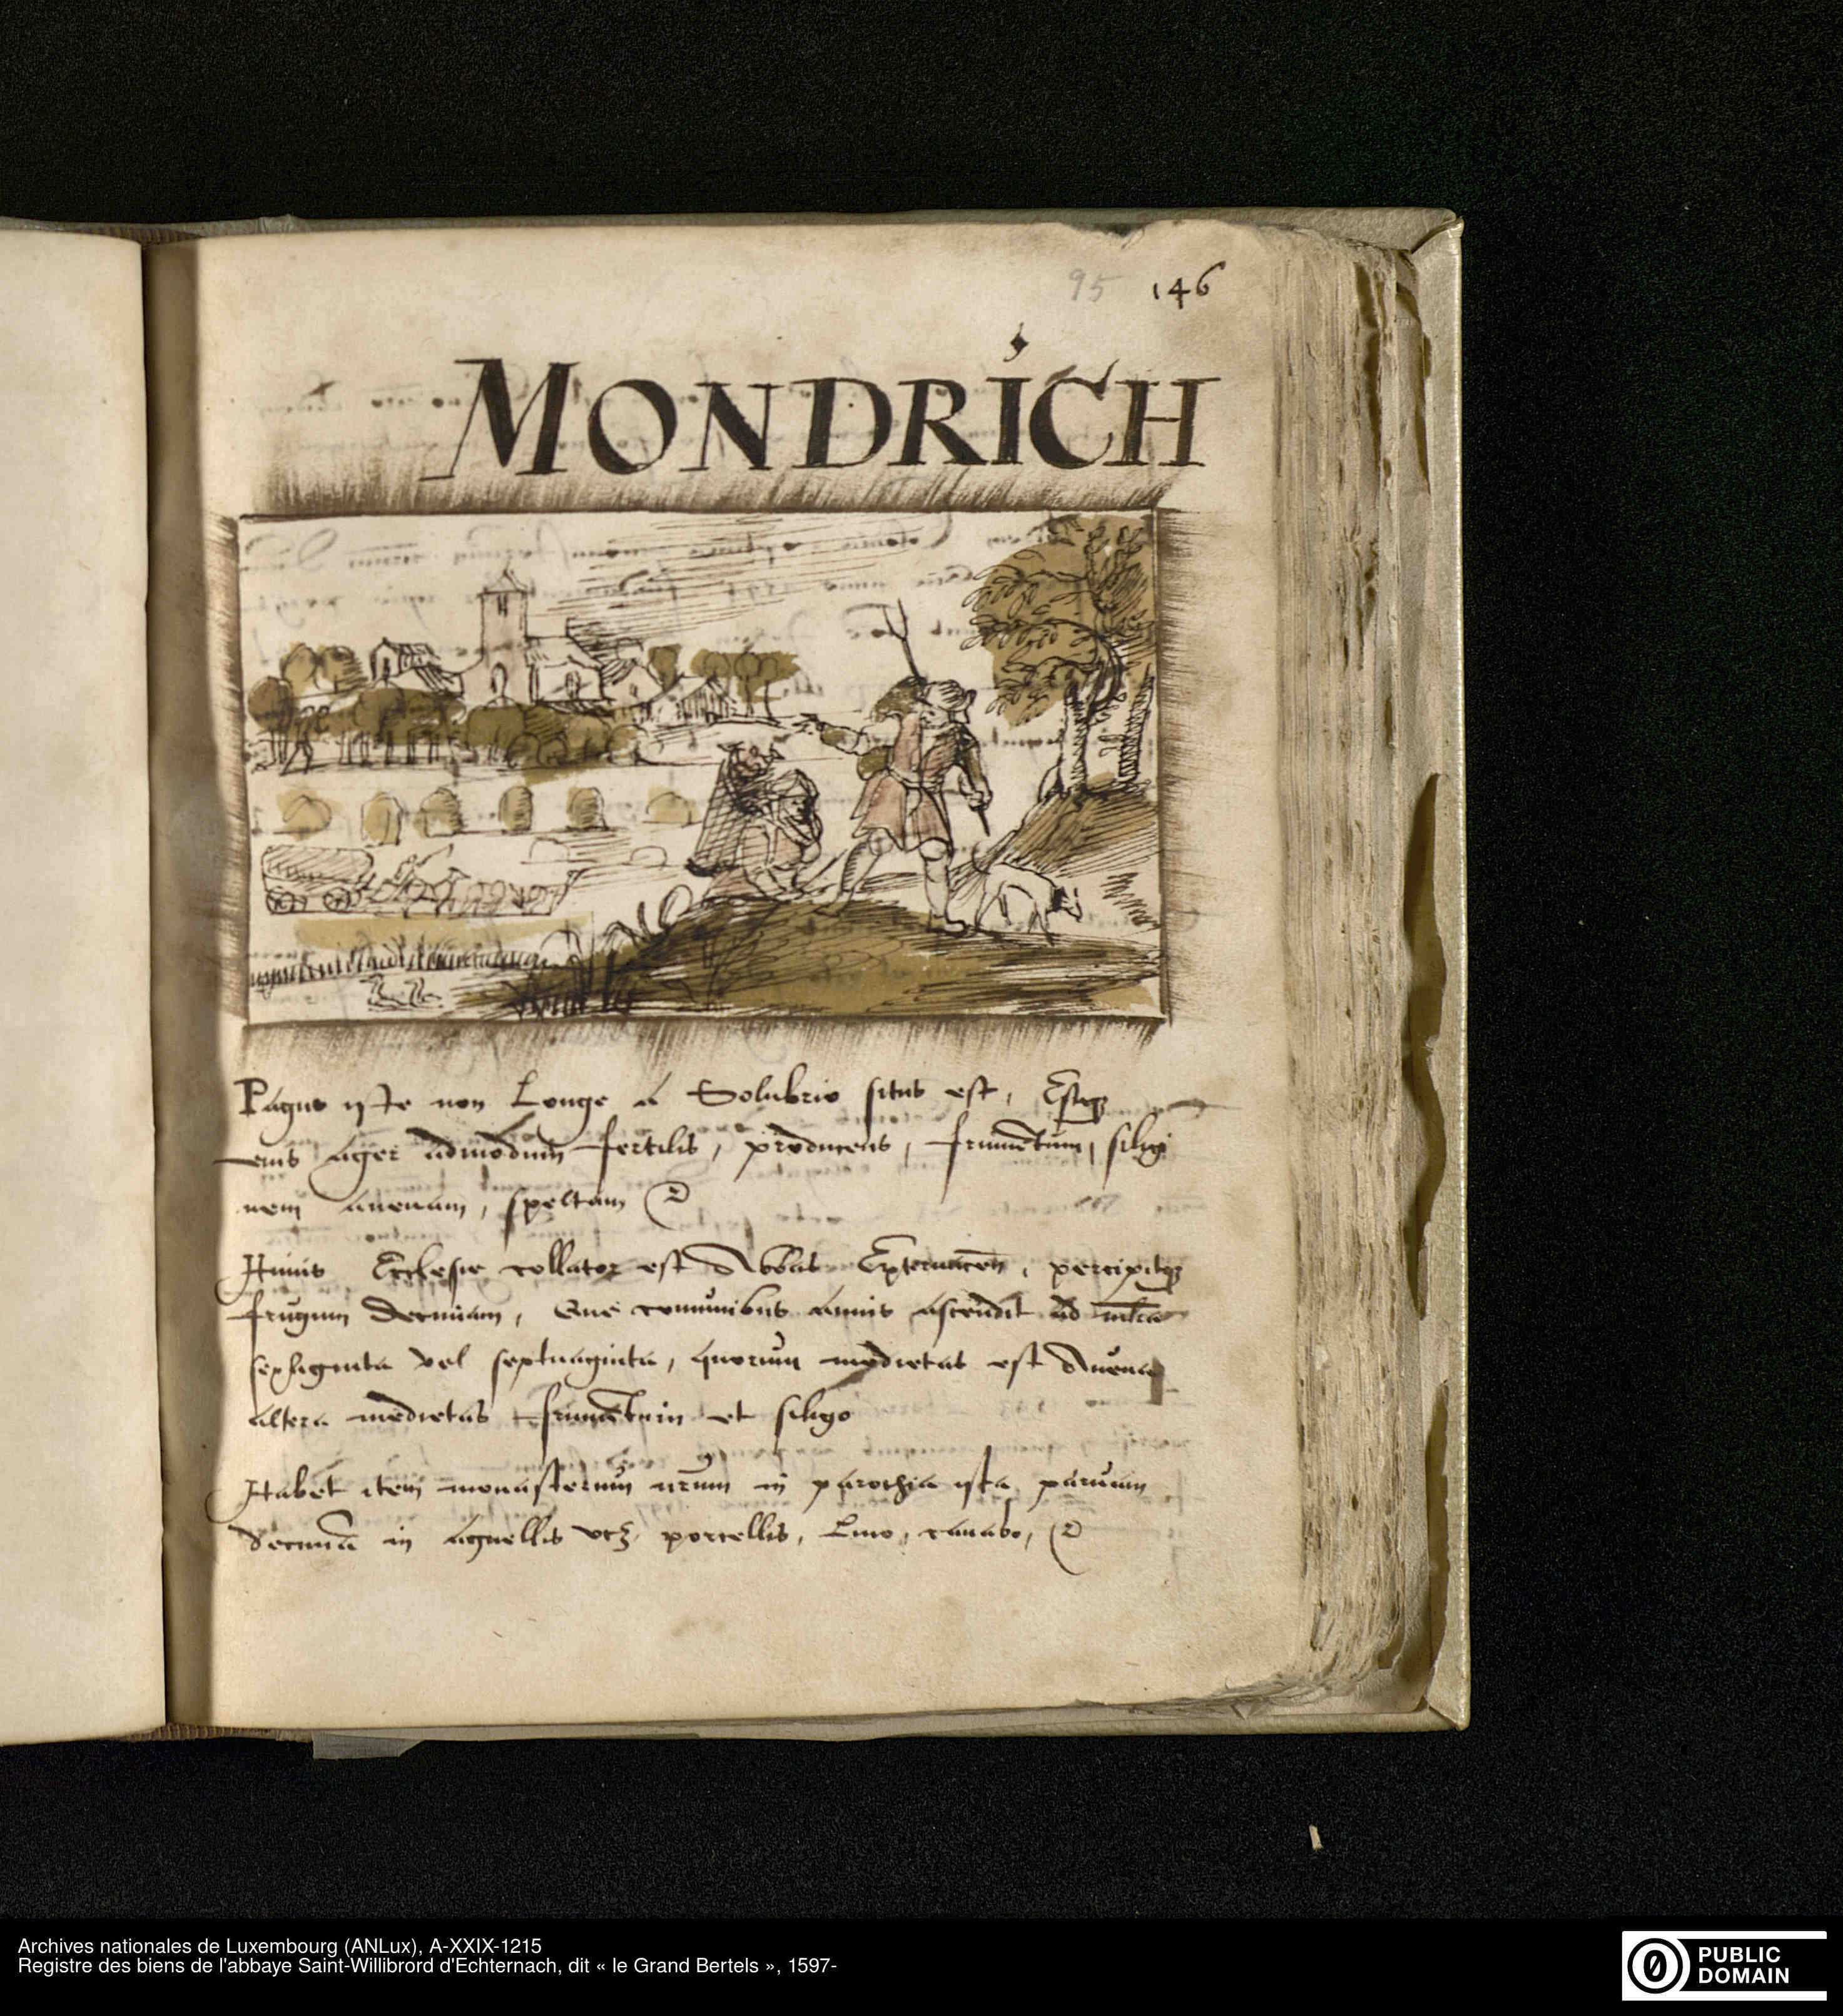 95 146
MONDRICH
Pagus iste non Longe a Solubrio situs est, Estq̨
eius ager admodum fertilis, producens, frumētum, siligi
nem auenam, speltam
Huius Ecclesie collator est Abbas Epternacen̄, percipitq̨
frugum Decimam, Que comunibus annis ascendit ad
sexaginta vel septuaginta, quorum medietas est Auena
altera medietas frumētum et siligo
Habet item monasteriū nr̄um in parochia ista paruam
decimā in agnellis vtz porcellis, Lino, canabo,
Archives nationales de Luxembourg (ANLux), A-XXIX-1215
Registre des biens de l'abbaye Saint-Willibrord d'Echternach, dit « le Grand Bertels », 1597-
PUBLIC
DOMAIN